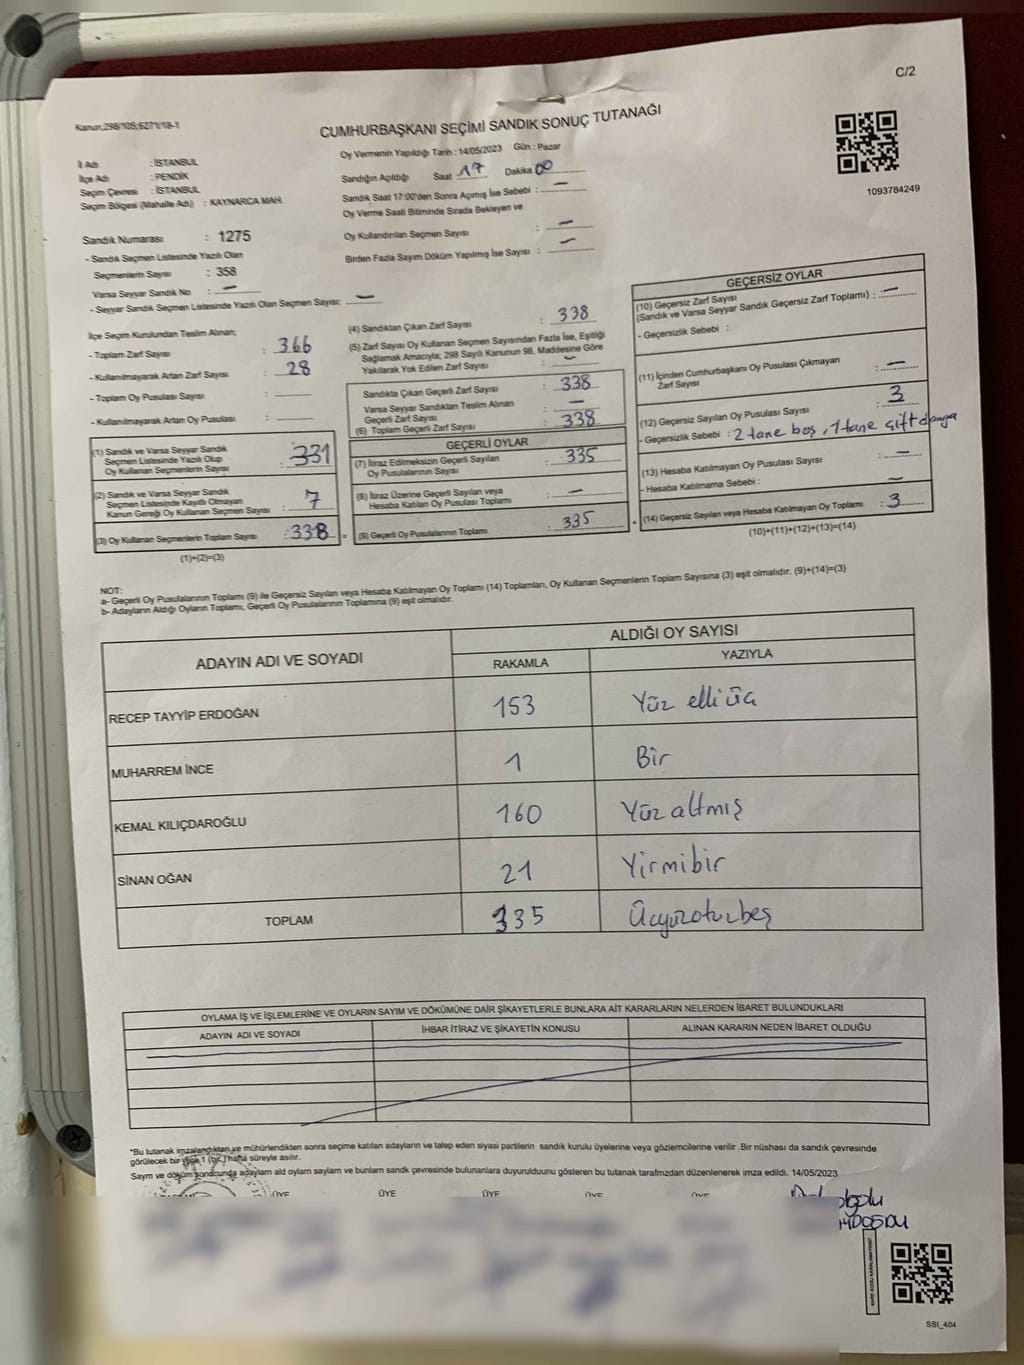 C/2
Kanun;298/105;6271/18-1
CUMHURBAŞKANI SEÇİMİ SANDIK SONUÇ TUTANAĞI
1093784249
İl Adı : İSTANBUL
İlçe Adı : PENDİK
Seçim Çevresi : İSTANBUL
Seçim Bölgesi (Mahalle Adı) : KAYNARCA MAH.
Oy Vermenin Yapıldığı Tarih : 14/05/2023 Gün : Pazar
Sandığın Açıldığı Saat 17 Dakika 00
Sandık Saat 17:00'den Sonra Açımış İse Sebebi : —
Oy Verme Saati Bitiminde Sırada Bekleyen ve
Oy Kullandırılan Seçmen Sayısı : —
Birden Fazla Sayım Döküm Yapılmış İse Sayısı : —
Sandık Numarası : 1275
- Sandık Seçmen Listesinde Yazılı Olan
Seçmenlerin Sayısı : 358
Varsa Seyyar Sandık No : —
- Seyyar Sandık Seçmen Listesinde Yazılı Olan Seçmen Sayısı: —
İlçe Seçim Kurulundan Teslim Alınan;
- Toplam Zarf Sayısı : 366
- Kullanılmayarak Artan Zarf Sayısı : 28
- Toplam Oy Pusulası Sayısı :
- Kullanılmayarak Artan Oy Pusulası :
(1) Sandık ve Varsa Seyyar Sandık
Seçmen Listesinde Yazılı Olup
Oy Kullanan Seçmenlerin Sayısı : 331
(2) Sandık ve Varsa Seyyar Sandık
Seçmen Listesinde Kayıtlı Olmayan
Kanun Gereği Oy Kullanan Seçmen Sayısı : 7
(3) Oy Kullanan Seçmenlerin Toplam Sayısı : 338
(1)+(2)=(3)
(4) Sandıktan Çıkan Zarf Sayısı : 338
(5) Zarf Sayısı Oy Kullanan Seçmen Sayısından Fazla İse, Eşitliği
Sağlamak Amacıyla; 298 Sayılı Kanunun 98. Maddesine Göre
Yakılarak Yok Edilen Zarf Sayısı : —
Sandıkta Çıkan Geçerli Zarf Sayısı : 338
Varsa Seyyar Sandıktan Teslim Alınan
Geçerli Zarf Sayısı : —
(6) Toplam Geçerli Zarf Sayısı : 338
GEÇERLİ OYLAR
(7) İtiraz Edilmeksizin Geçerli Sayılan
Oy Pusulalarının Sayısı : 335
(8) İtiraz Üzerine Geçerli Sayılan veya
Hesaba Katılan Oy Pusulası Toplamı : —
= (9) Geçerli Oy Pusulalarının Toplamı : 335 +
GEÇERSİZ OYLAR
(10) Geçersiz Zarf Sayısı
(Sandık ve Varsa Seyyar Sandık Geçersiz Zarf Toplamı) : —
- Geçersizlik Sebebi :
(11) İçinden Cumhurbaşkanı Oy Pusulası Çıkmayan
Zarf Sayısı : —
(12) Geçersiz Sayılan Oy Pusulası Sayısı : 3
- Geçersizlik Sebebi : 2 tane boş, 1 tane çift damga
(13) Hesaba Katılmayan Oy Pusulası Sayısı : —
- Hesaba Katılmama Sebebi : —
(14) Geçersiz Sayılan veya Hesaba Katılmayan Oy Toplamı : 3
(10)+(11)+(12)+(13)=(14)
NOT:
a- Geçerli Oy Pusulalarının Toplamı (9) ile Geçersiz Sayılan veya Hesaba Katılmayan Oy Toplamı (14) Toplamları, Oy Kullanan Seçmenlerin Toplam Sayısına (3) eşit olmalıdır. (9)+(14)=(3)
b- Adayların Aldığı Oyların Toplamı, Geçerli Oy Pusulalarının Toplamına (9) eşit olmalıdır.
ADAYIN ADI VE SOYADI
ALDIĞI OY SAYISI
RAKAMLA YAZIYLA
RECEP TAYYİP ERDOĞAN 153 Yüz elli üç
MUHARREM İNCE 1 Bir
KEMAL KILIÇDAROĞLU 160 Yüz altmış
SİNAN OĞAN 21 Yirmibir
TOPLAM 335 Üçyüzotuzbeş
OYLAMA İŞ VE İŞLEMLERİNE VE OYLARIN SAYIM VE DÖKÜMÜNE DAİR ŞİKAYETLERLE BUNLARA AİT KARARLARIN NELERDEN İBARET BULUNDUKLARI
ADAYIN ADI VE SOYADI İHBAR İTİRAZ VE ŞİKAYETİN KONUSU ALINAN KARARIN NEDEN İBARET OLDUĞU
*Bu tutanak imzalandıktan ve mühürlendikten sonra seçime katılan adayların ve talep eden siyasi partilerin sandık kurulu üyelerine veya gözlemcilerine verilir .Bir nüshası da sandık çevresinde
görülecek bir yere 1 (bir) hafta süreyle asılır.
Sayım ve döküm sonucunda adayların ald oyların sayların ve bunların sandık çevresinde bulunanlara duyurulduunu gösteren bu tutanak tarafmzdan düzenlenerek imza edildi. 14/05/2023
ÜYE ÜYE ÜYE ÜYE ÜYE
SSI_404